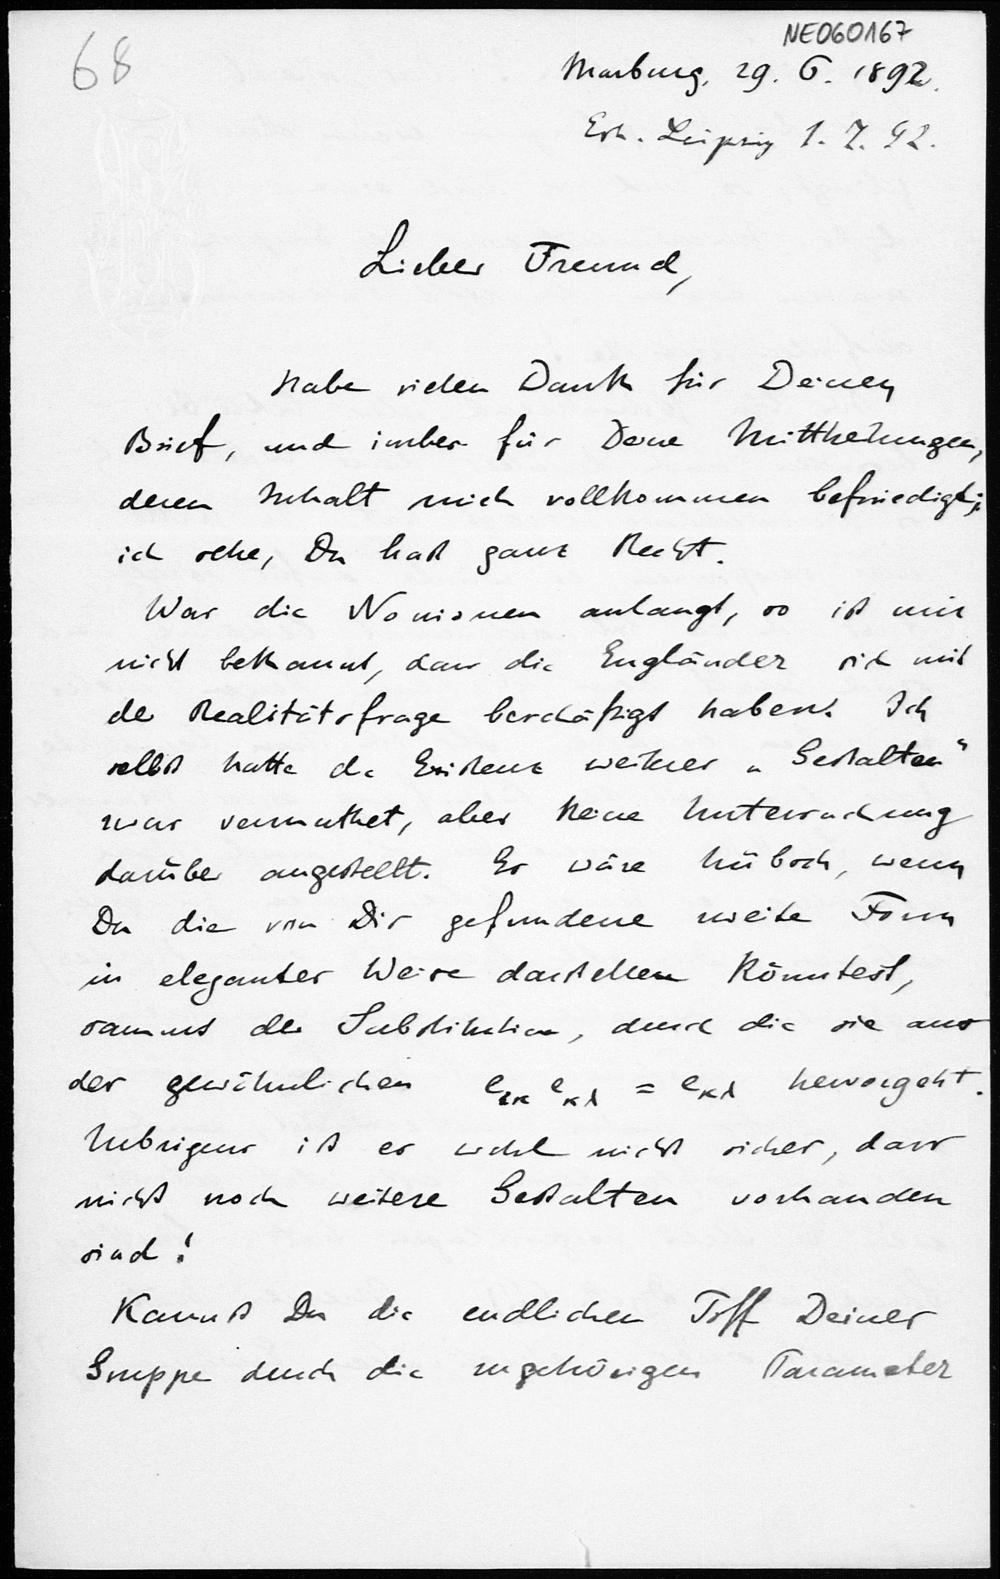 NE060167
68
Marburg, 29. 6. 1892.
Erh. Leipzig 1. 7. 92.
Lieber Freund,
Habe vielen Dank für Deinen
Brief, und für Deine Mittheilungen,
deren Inhalt mich vollkommen befriedigt;
ich sehe, Du hast ganz Recht.
Was die Nonionen anlangt, so ist mir
nicht bekannt, dass die Engländer sich mit
der Realitätsfrage beschäftigt haben. Ich
selbst hatte die Existenz weiterer „Gestalten“
zwar vermuthet, aber keine Untersuchung
darüber angestellt. Es wäre hübsch, wenn
Du die von Dir gefundene zweite Form
in eleganter Weise darstellen könntest,
sammt der Substitution, durch die sie aus
der gewöhnlichen e_{ικ} e_{κλ} = e_{κλ} hervorgeht.
Uebrigens ist es wohl nicht sicher, dass
nicht noch weitere Gestalten vorhanden
sind!
Kannst Du die endlichen Tff Deiner
Gruppe durch die zugehörigen Parameter